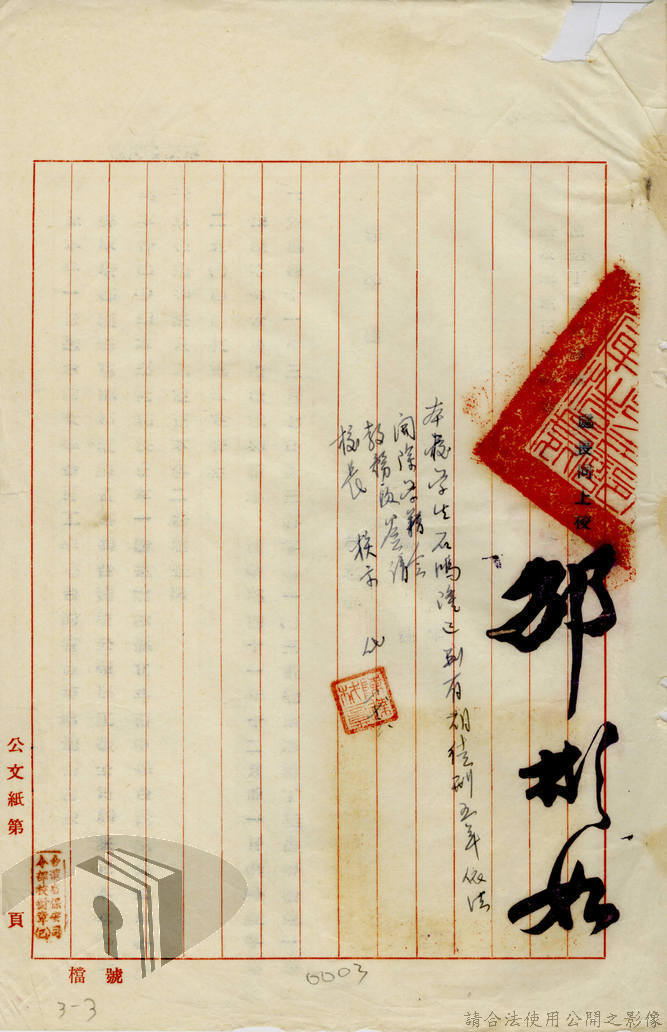 區長尚上校
邵彬如
本校學生石鳴隆已判有期徒刑五年依法
開除學籍
教務處簽請
校長 核示
公文紙第 頁
檔號
0003
3-3
請合法使用公開之影像